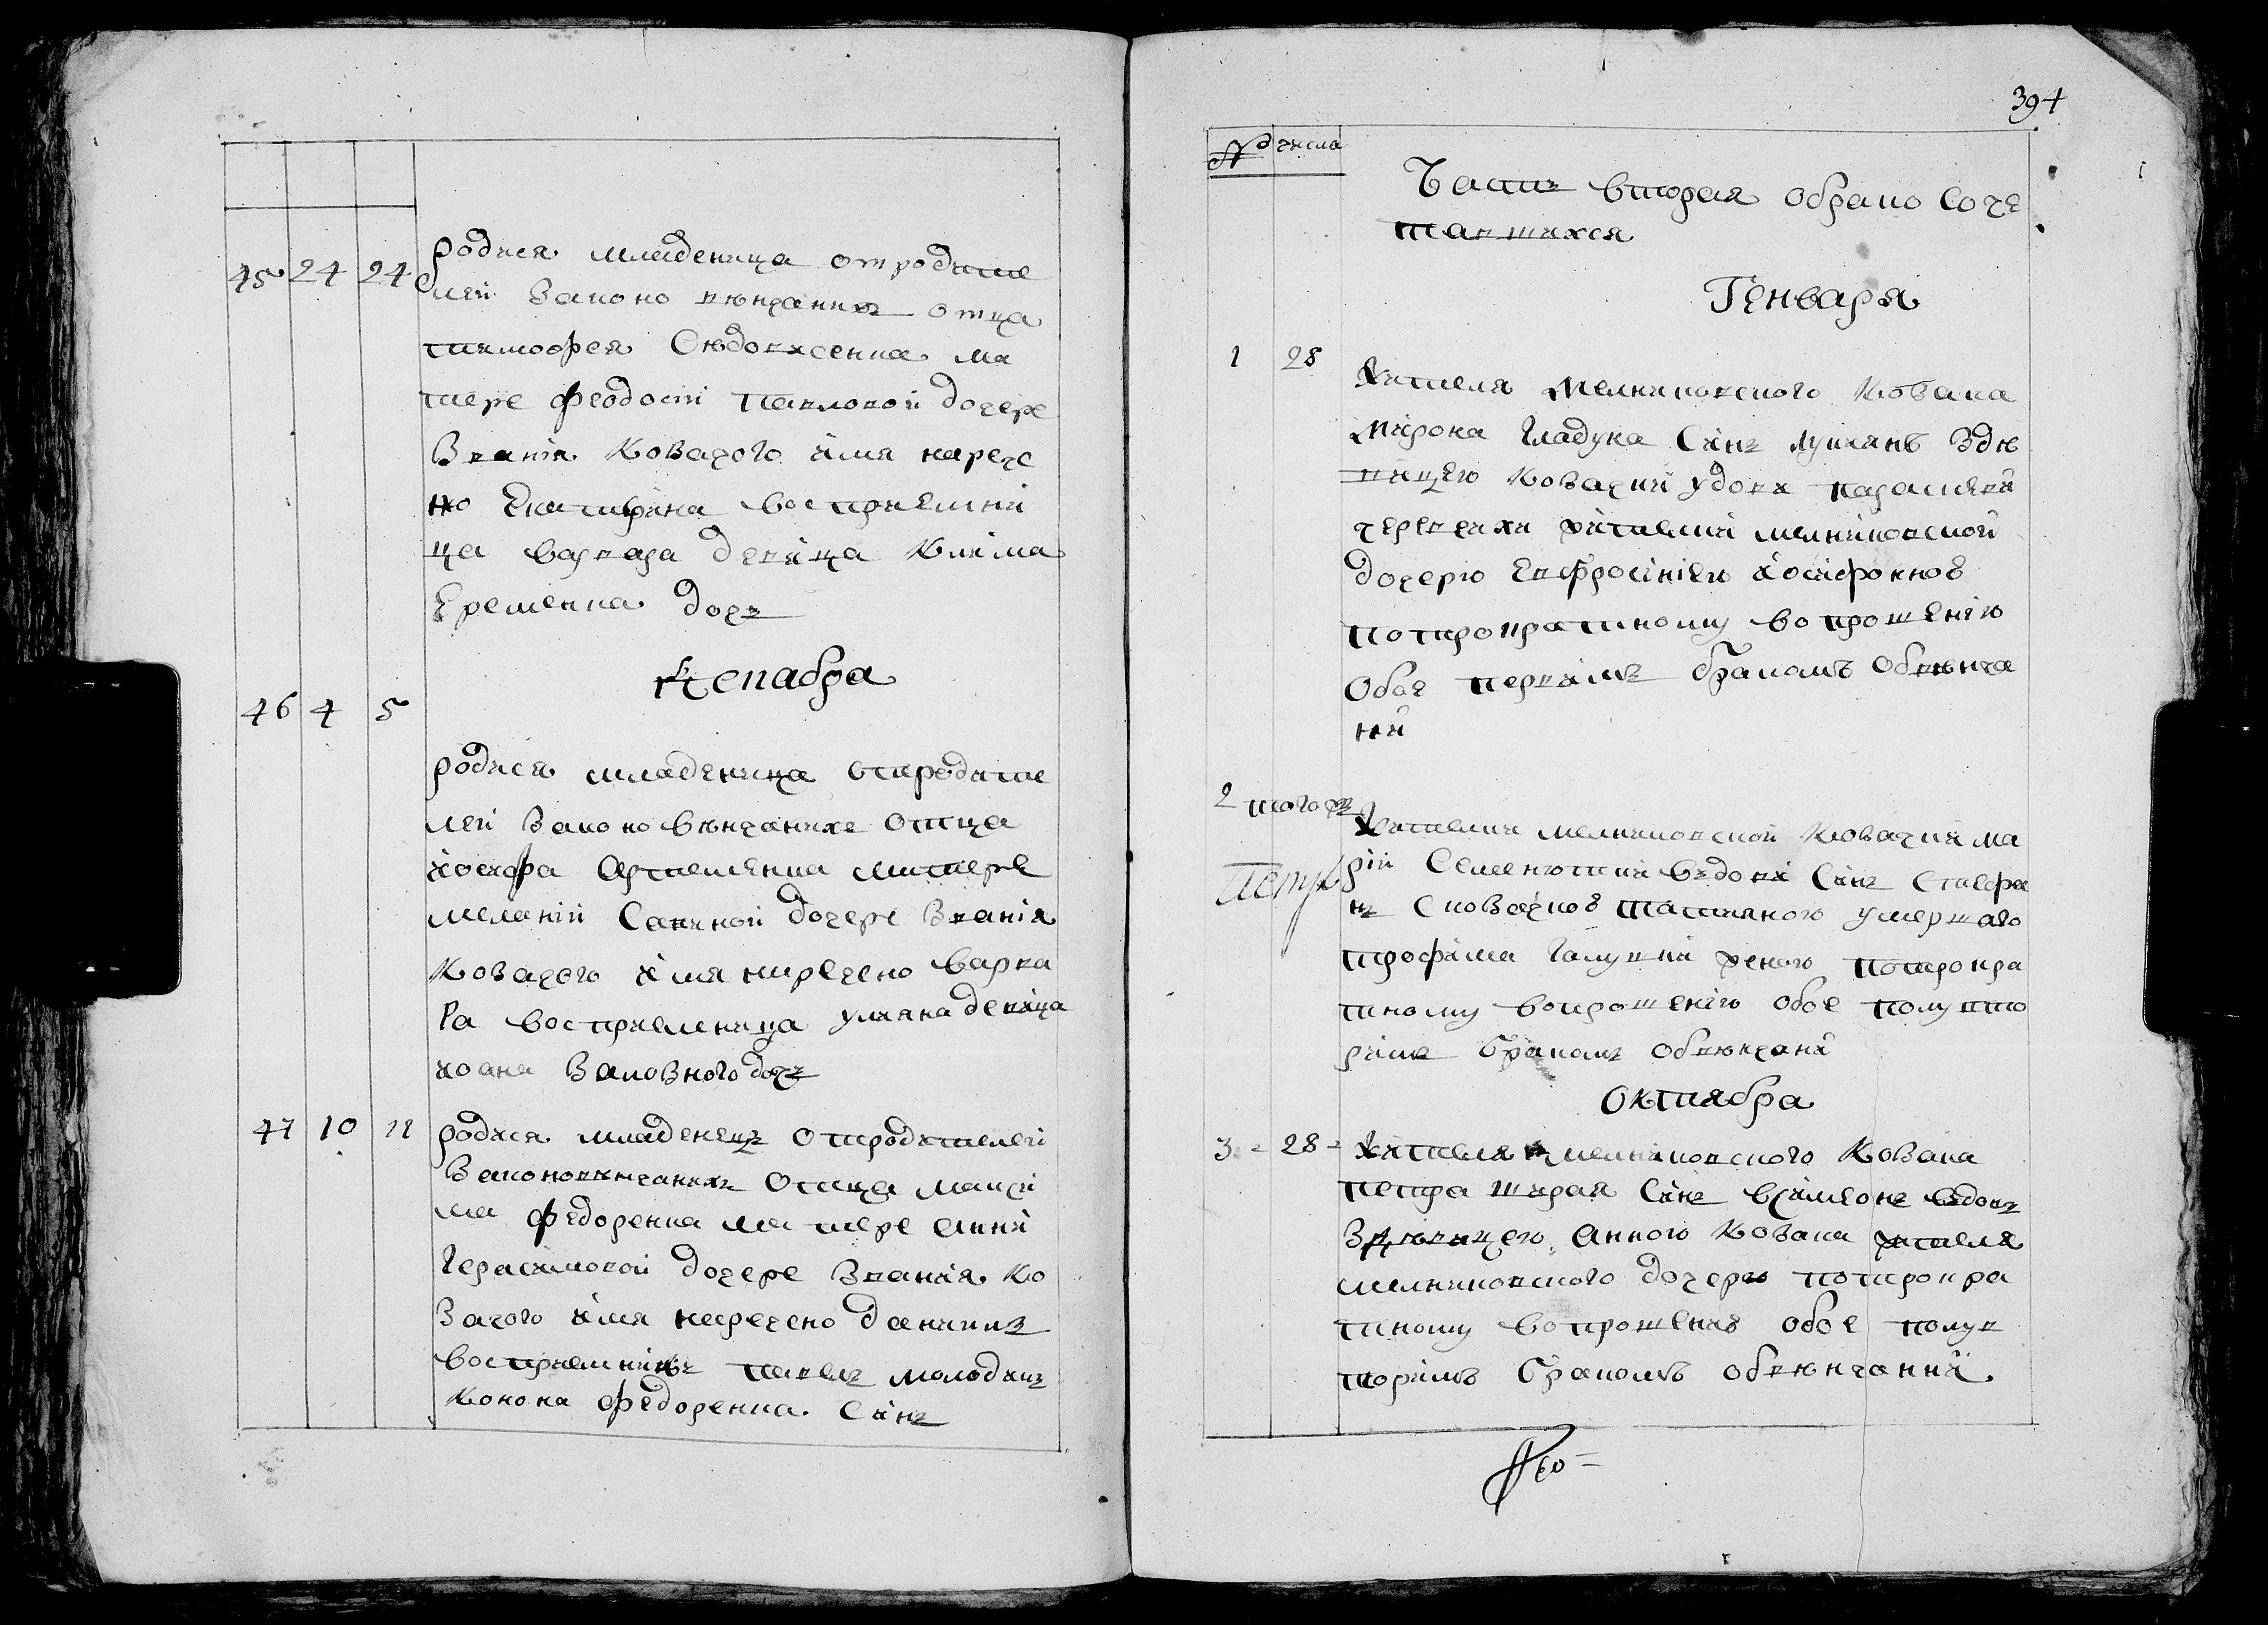 45 24 24 родися младеница от родите
лей законо венчаних отца
тимофея Овдовженка ма
тере феодосіи павловой дочере
званія козачого имя нарече
но Екатирина воспрнемни
ца варвара девица клима
Еременка дочъ
Декабра
46 4 5
родися младеница отродите
лей законо венчаних отца
иосифа Артеменка матере
меланіи Савиной дочере званія
козачого имя наречено варва
ра восприемница улияна девица
иоана Заловного дочъ
47 10 11 родися младенецъ отродителей
законовенчаних отца макси
ма федоренка матере анни
Герасимовой дочере званія ко
зачого имя наречено даниилъ
восприемникъ павелъ молодикъ
конона федоренка Синъ
394
№ числа
Часть вторая обрако соче
тавшихся
Генваря
1 28 жителя мелниковского козака
Мирона Гладуна Синъ лукянъ здѣ
вицею козачки удови параскеви
черевички жителки мелниковской
дочерю Евфросиніею иосифовнов
потрократному вопрошенію
обое первимъ бракомъ обвѣнча
ни
2 тогожъ жителки мелниковской козачки ма
ріи Семенютки вдови Синъ Стефа
нъ Сковачков татияною умершаго
трофима Галушки женою потрокра
тному вопрошенію обое полувто
римъ бракомъ обвѣнчани
Петр
октября
3 = 28 = жителя мелниковского козака
петра Ширая Синъ Симеонъ вдовъ
здѣвицею анною козака жителя
мелниковского дочерю потрокра
тному вопрошенію обое полув
торимъ бракомъ обвѣнчанни